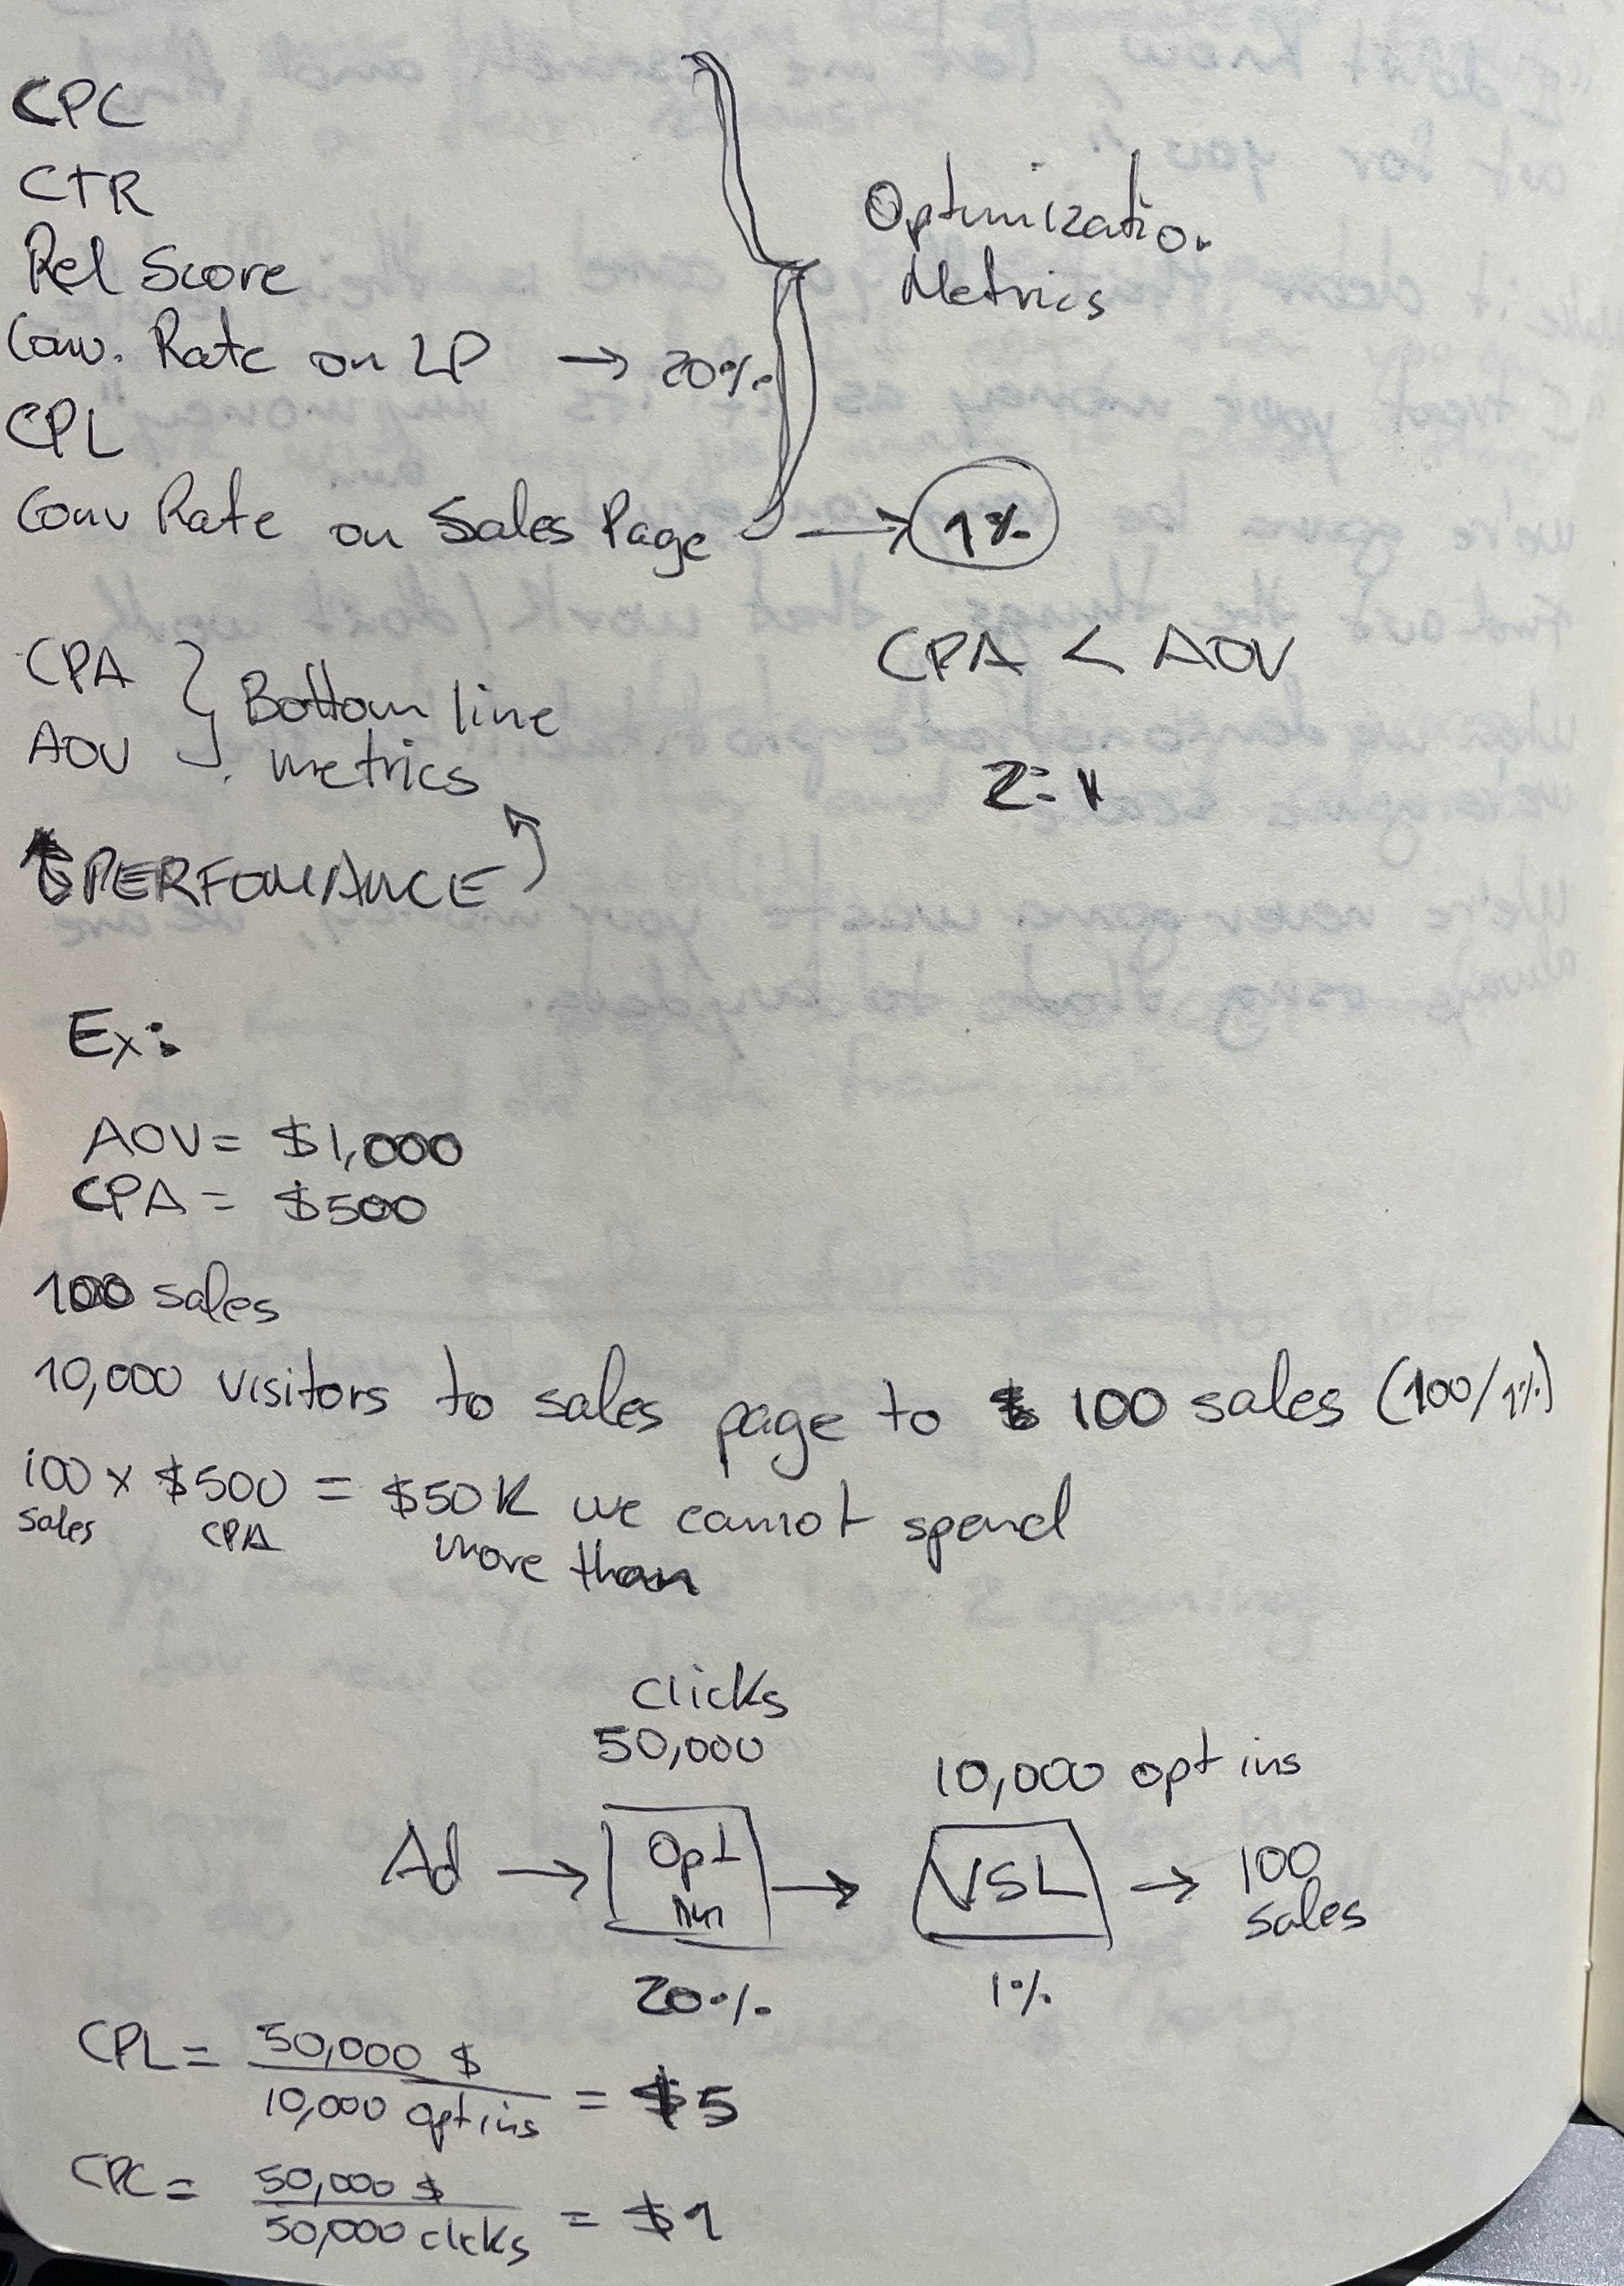 CPC
CTR
Rel Score
Conv. Rate on LP → 20%
CPL
Conv Rate on Sales Page → 1%
Optimization
Metrics
CPA
AOV
Bottom line
metrics
CPA < AOV
2:1
PERFOMANCE
Ex:
AOV = $1,000
CPA = $500
100 sales
10,000 visitors to sales page to 100 sales (100/1%)
100 x $500 = $50K we cannot spend
sales CPA more than
clicks
50,000
10,000 opt ins
Ad → Opt → VSL → 100
sales
20% 1%
CPL = 50,000 $
10,000 opt ins = $5
CPC = 50,000 $
50,000 clicks = $1